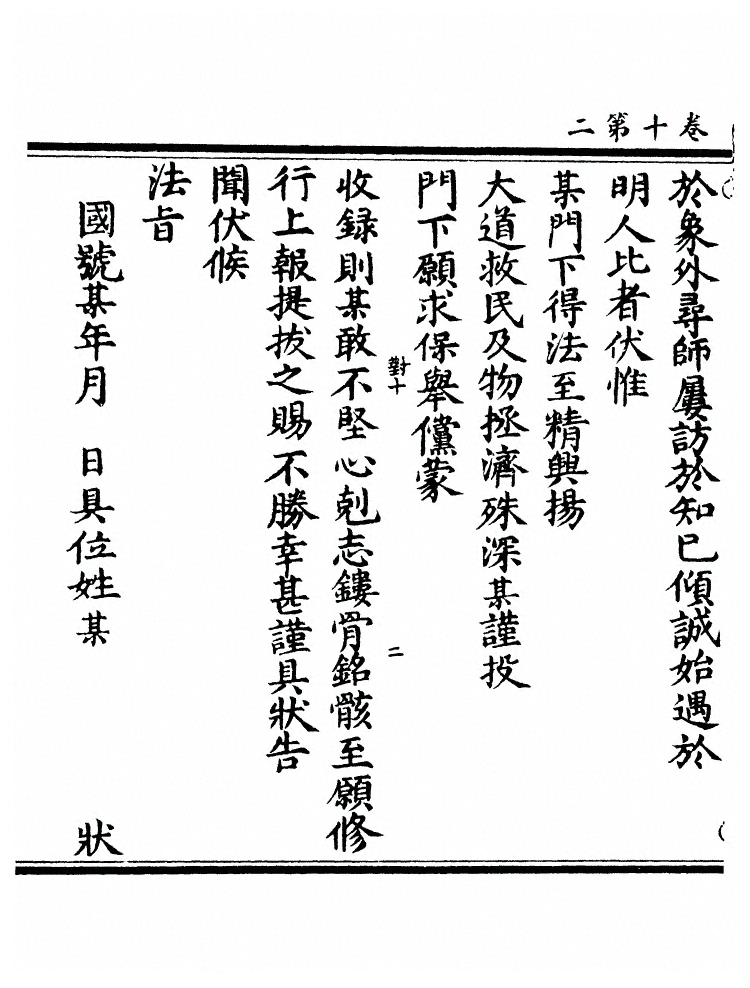 卷十第二
於象外尋師屢訪於知已傾誠始遇於
明人比者伏惟
某門下得法至精興揚
大道救民及物拯濟殊深某謹投
門下願求保舉儻蒙
對十
二
收録則某敢不堅心剋志鏤骨銘骸至願修
行上報提拔之賜不勝幸甚謹具狀告
聞伏候
法旨
國號某年月 日具位姓某 狀